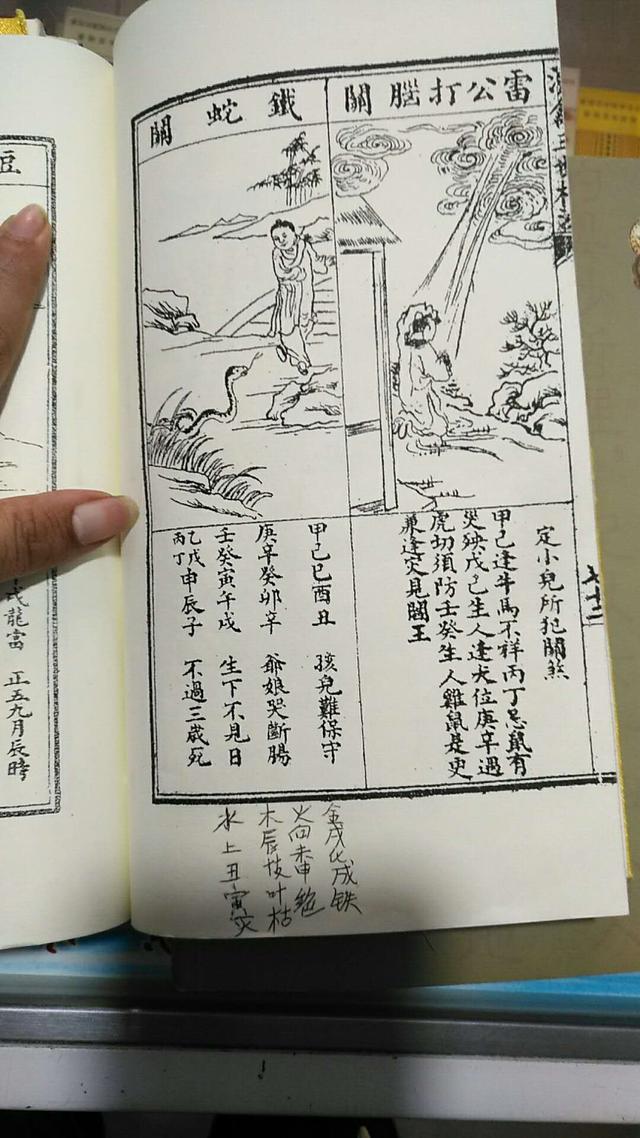 雷公打腦關
定小兒所犯關煞
甲己逢牛馬不祥丙丁忌鼠有
災殃戊己生人逢犬位庚辛遇
虎切須防壬癸生人雞鼠是更
兼逢灾見閻王
七十二
鐵蛇關
甲己巳酉丑 孩兒難保守
庚辛癸卯辛 爺娘哭斷腸
壬癸寅午戌 生下不見日
乙戊丙丁申辰子 不過三歲死
金戌化成铁
火向未申絕
木辰枝叶枯
水上丑寅灾
戌龍當 正五九月辰時